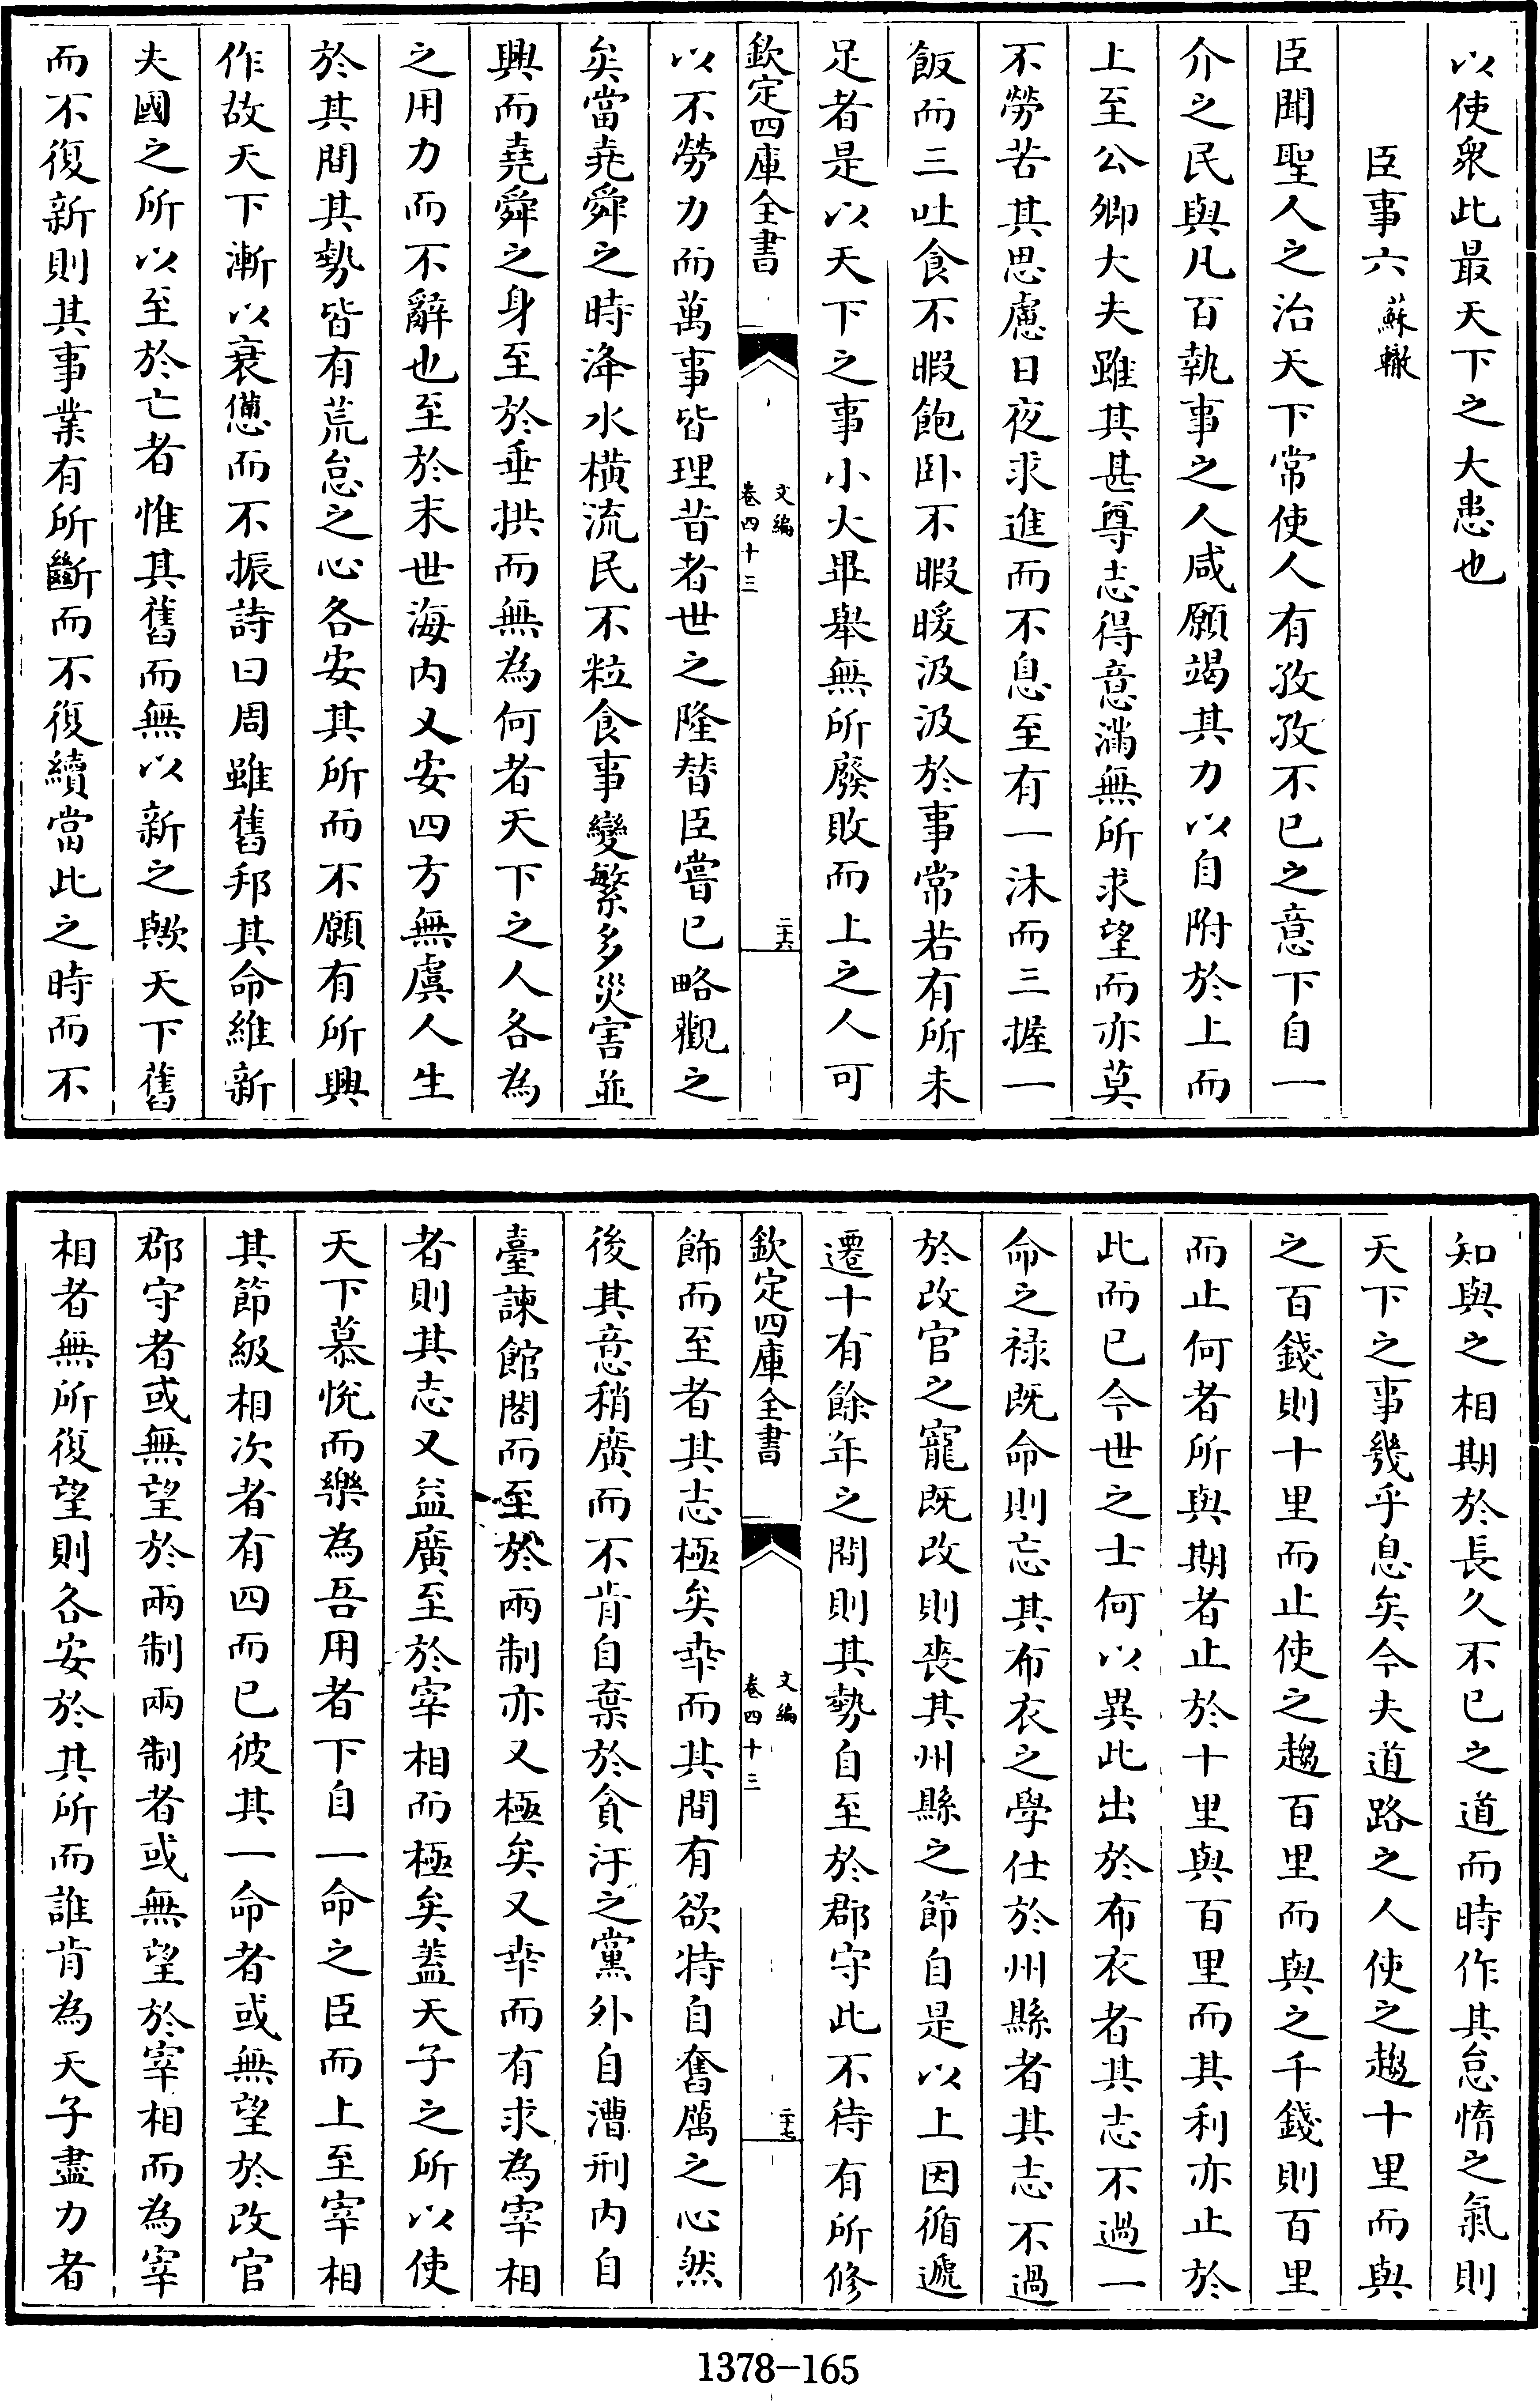 以使衆此最天下之大患也
臣事六 蘇轍
臣聞聖人之治天下常使人有孜孜不已之意下自一
介之民與凡百執事之人咸願竭其力以自附於上而
上至公卿大夫雖其甚尊志得意滿無所求望而亦莫
不勞苦其思慮日夜求進而不息至有一沐而三握一
飯而三吐食不暇飽卧不暇暖汲汲於事常若有所未
足者是以天下之事小大畢舉無所廢敗而上之人可
欽定四庫全書 文編 卷四十三 二十六
以不勞力而萬事皆理昔者世之隆替臣嘗已略觀之
矣當堯舜之時洚水橫流民不粒食事變繁多災害並
興而堯舜之身至於垂拱而無為何者天下之人各為
之用力而不辭也至於末世海内乂安四方無虞人生
於其間其勢皆有荒怠之心各安其所而不願有所興
作故天下漸以衰憊而不振詩曰周雖舊邦其命維新
夫國之所以至於亡者惟其舊而無以新之歟天下舊
而不復新則其事業有所斷而不復續當此之時而不
知與之相期於長久不已之道而時作其怠惰之氣則
天下之事幾乎息矣今夫道路之人使之趨十里而與
之百錢則十里而止使之趨百里而與之千錢則百里
而止何者所與期者止於十里與百里而其利亦止於
此而已今世之士何以異此出於布衣者其志不過一
命之禄既命則忘其布衣之學仕於州縣者其志不過
於改官之寵既改則喪其州縣之節自是以上因循遞
遷十有餘年之間則其勢自至於郡守此不待有所修
欽定四庫全書 文編 卷四十三 二十七
飾而至者其志極矣幸而其間有欲特自奮厲之心然
後其意稍廣而不肯自棄於貪汙之黨外自漕刑内自
臺諫館閣而至於兩制亦又極矣又幸而有求為宰相
者則其志又益廣至於宰相而極矣蓋天子之所以使
天下慕悅而樂為吾用者下自一命之臣而上至宰相
其節級相次者有四而已彼其一命者或無望於改官
郡守者或無望於兩制兩制者或無望於宰相而為宰
相者無所復望則各安於其所而誰肯為天子盡力者
1378-165